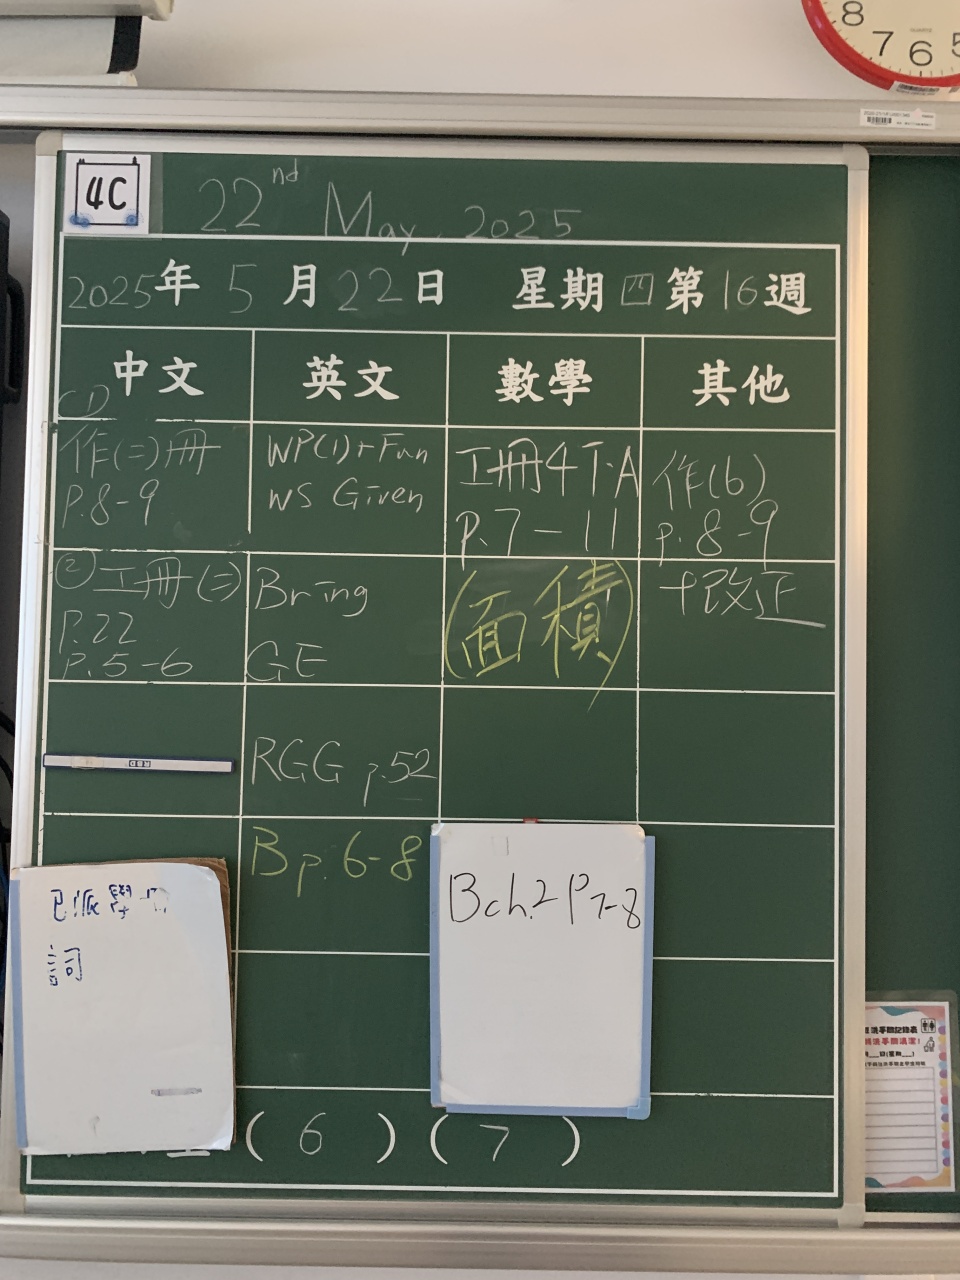 8
7
6
5
4C
22nd May, 2025
2025年5月22日 星期四第16週
中文 英文 數學 其他
(1)
作(二)冊
P.8-9
WP(1)+Fun
WS Given
工冊4下A
p.7-11
作(6)
p.8-9
②工冊(二)
P.22
P.5-6
Bring
GE
(面積)
+改正
RGG p.52
B p.6-8
Bch.2 P7-8
已派
詞
(6)(7)